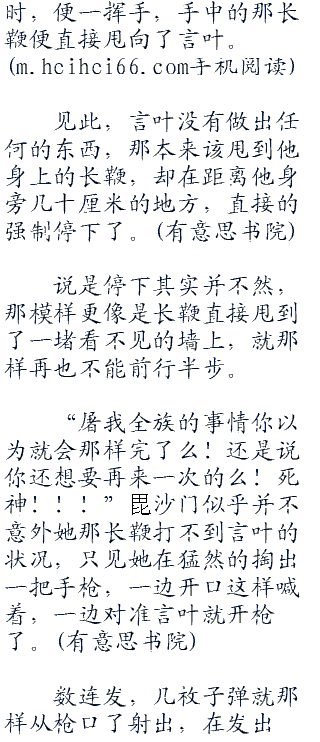 时，便一挥手，手中的那长
鞭便直接甩向了言叶。
(m.hcihci66.com手机阅读)
见此，言叶没有做出任
何的东西，那本来该甩到他
身上的长鞭，却在距离他身
旁几十厘米的地方，直接的
强制停下了。(有意思书院)
说是停下其实并不然，
那模样更像是长鞭直接甩到
了一堵看不见的墙上，就那
样再也不能前行半步。
“屠我全族的事情你以
为就会那样完了么！还是说
你还想要再来一次的么！死
神！！！”毘沙门似乎并不
意外她那长鞭打不到言叶的
状况，只见她在猛然的掏出
一把手枪，一边开口这样喊
着，一边对准言叶就开枪
了。(有意思书院)
数连发，几枚子弹就那
样从枪口了射出，在发出